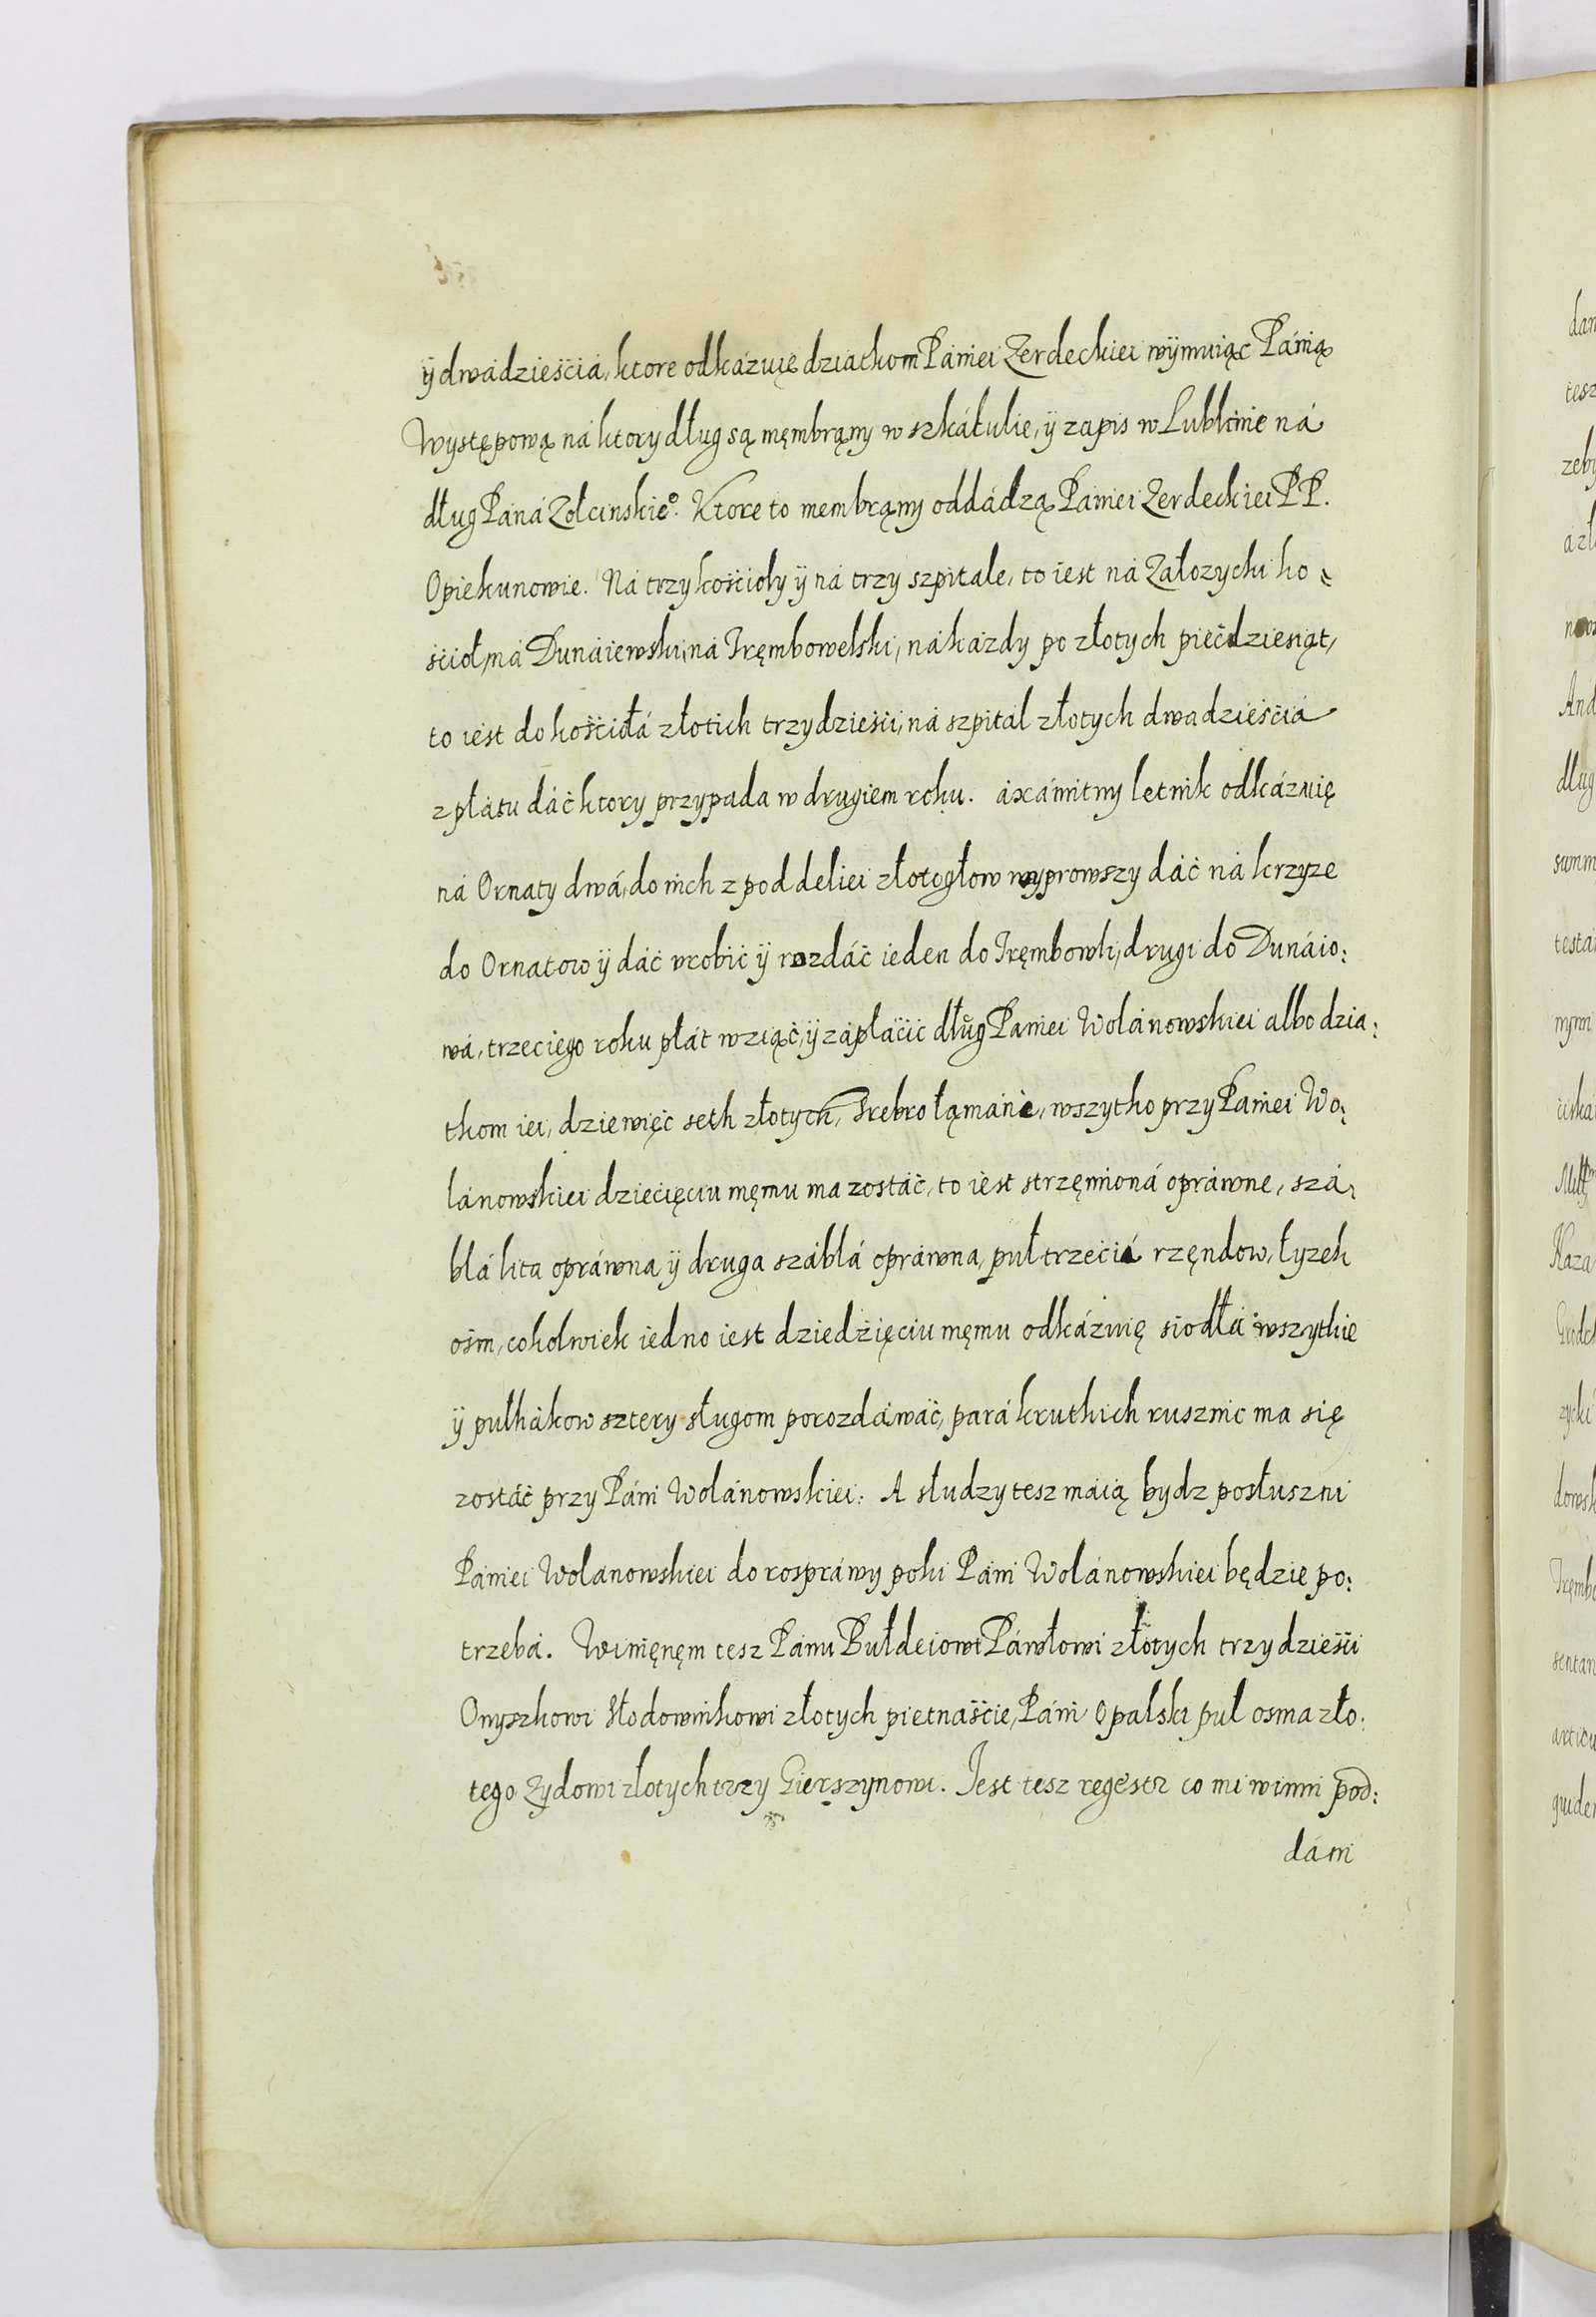 ÿ dwádzieścia, ktore odkázuię dziatkom Pániei Zerdeckiei wÿmuiąc Pánią
Występową ná ktory dług są męmbrąny w szkátulie, ÿ zapis w Lublinie ná
dług Páná Zolcinskie⁰. Ktore to membrąny oddádzą Pániei Zerdeckiei P P.
Opiekunowie. Ná trzy kościoły ÿ ná trzy szpitale, to iest ná Załozycki ko=
ścioł, ná Dunáiewski, ná Tręmbowelski, ná kázdy po złotych pięćdziesiąt,
to iest do kościołá złotich trzydzieści, ná szpital złotych dwadzieściá
z płátu dáć ktory przypada w drugiem roku. áxámitny letnik odkázuię
ná Ornaty dwá, do nich z pod deliei złotogłow wyprowszy dáć ná krzyze
do Ornatow ÿ dáć urobić ÿ rozdáć ieden do Tręmbowli, drugi do Dunáio:
wá, trzeciego roku płát wziąć, ÿ zápłácić dług Paniei Wolánowskiei albo dzia:
tkom iei, dziewięć seth złotych, Srebro łąmánie, wszytko przy Paniei Wo:
lánowskiei dziecięciu męmu ma zostáć, to iest strzęmioná opráwne, szá:
blá lita opráwna ÿ druga száblá opráwna, puł trzeciá rzęndow, łyzek
ośm, cokolwiek iedno iest dziedzięciu męmu odkázuię siodłá wszytkie
ÿ pułhákow sztery sługom porozdáwáć, pará krutkich rusznic ma się
zostáć przy Páni Wolánowskiei: A słudzy tesz máią bydz posłuszni
Pániei Wolanowskiei do rospráwy poki Páni Wolánowskiei będzie po:
trzebá. Winięnęm tesz Pánu Bułdeiowi Páwłowi złotych trzydzieści
Onyszkowi Słodownikowi złotych pietnaście, Páni Opalski puł osma zło:
tego Zydowi zlotych trzy Gierszynowi. Jest tesz regestr co mi winni pod:
dáni